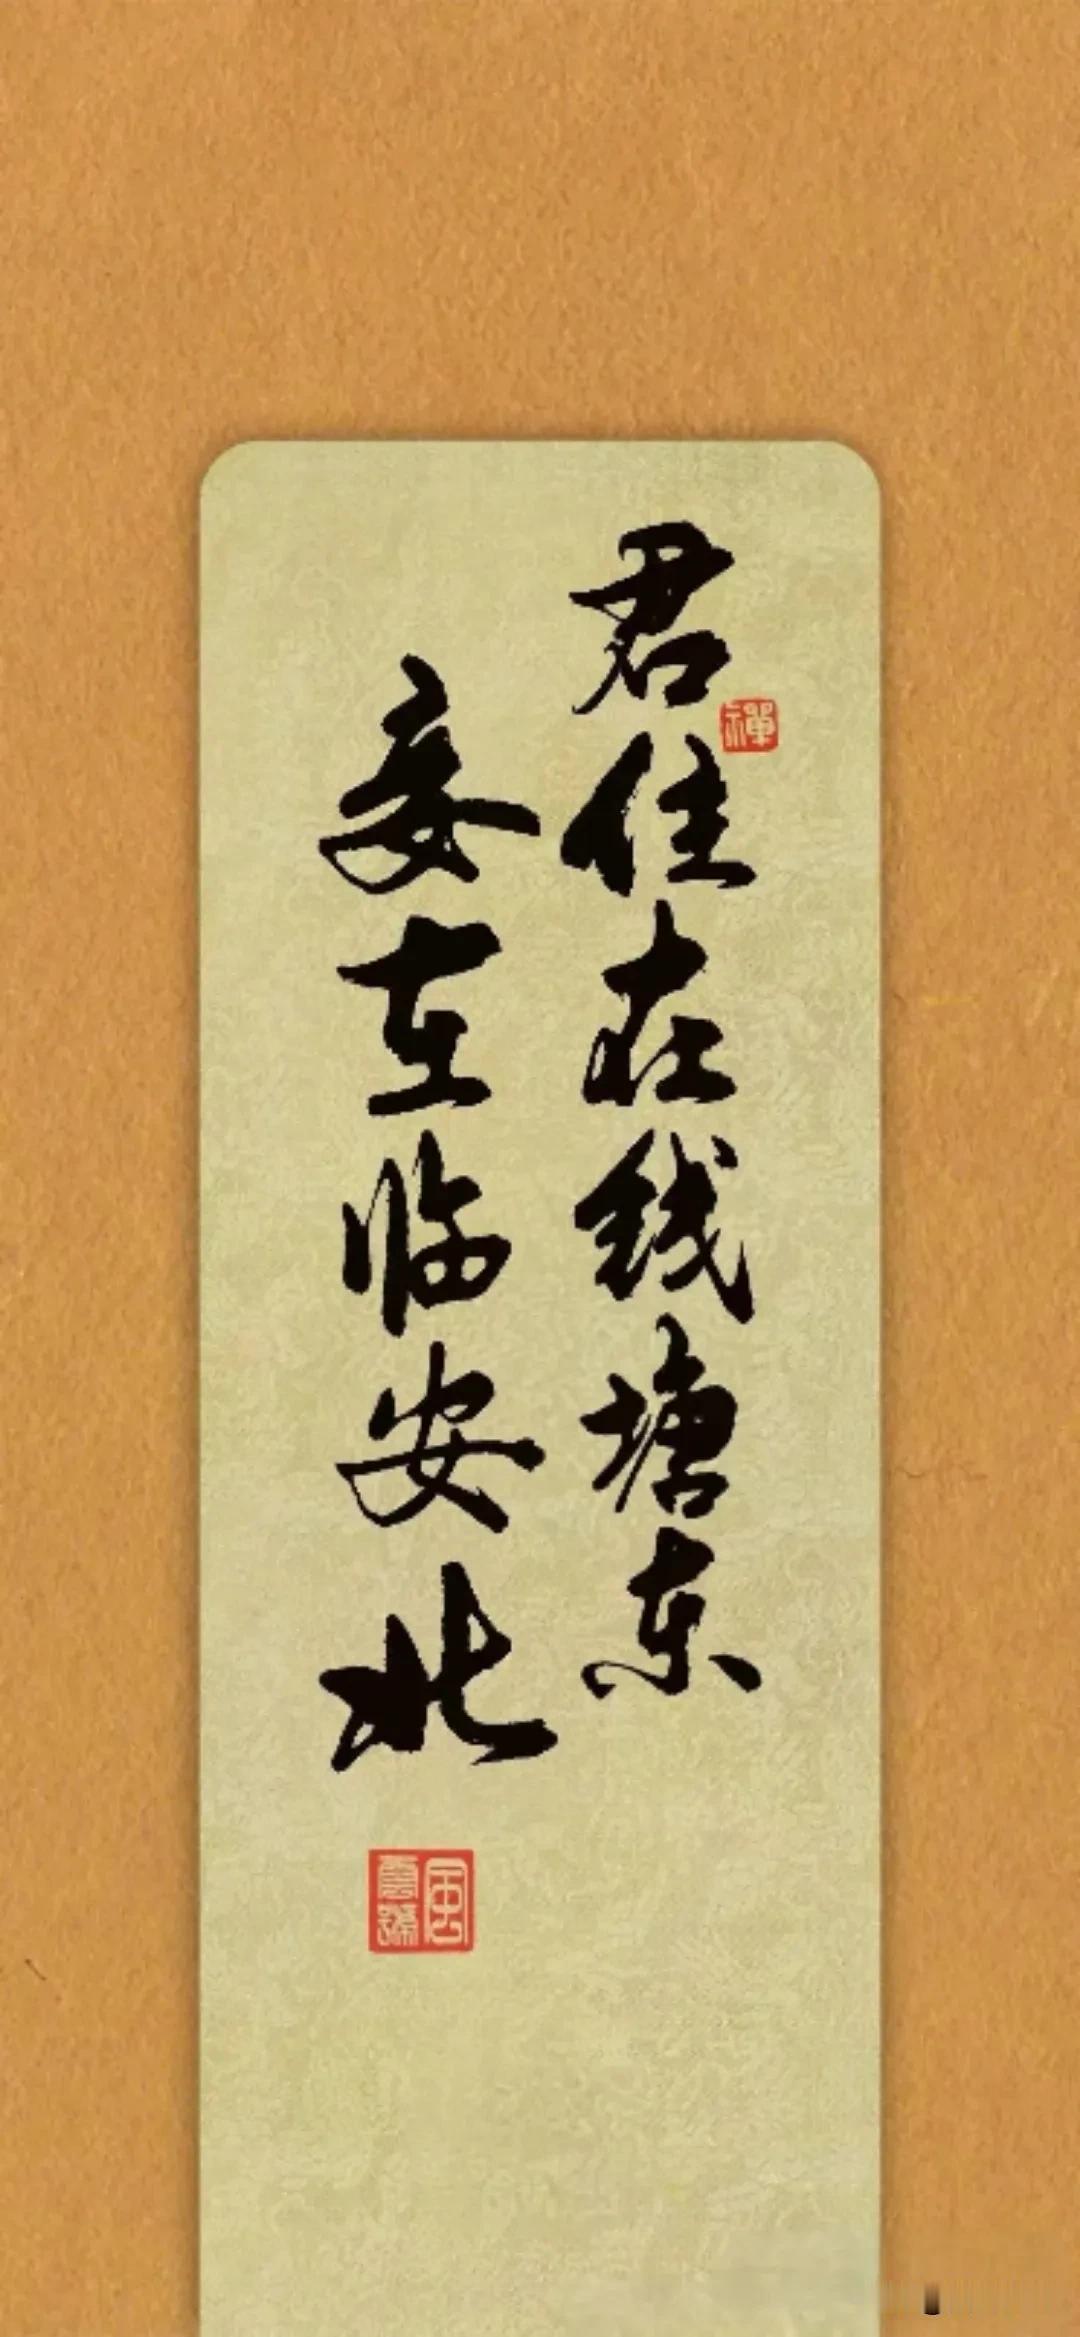 君住在钱塘东
妾在临安北
禅